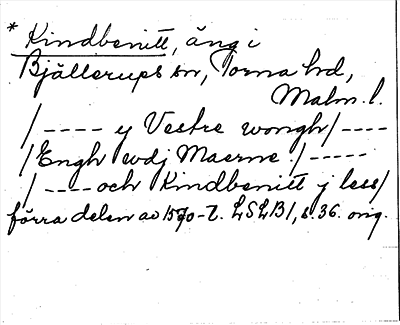 * Kindbenitt, äng i
Bjällerups sn, Torna hd,
Malm. l.
/---- y Vestre wongh/----
/Engh wdj Maerne./-----
/----och Kindbenitt j less/
förra delen av 1570-t. LSLB1, s. 36. orig.